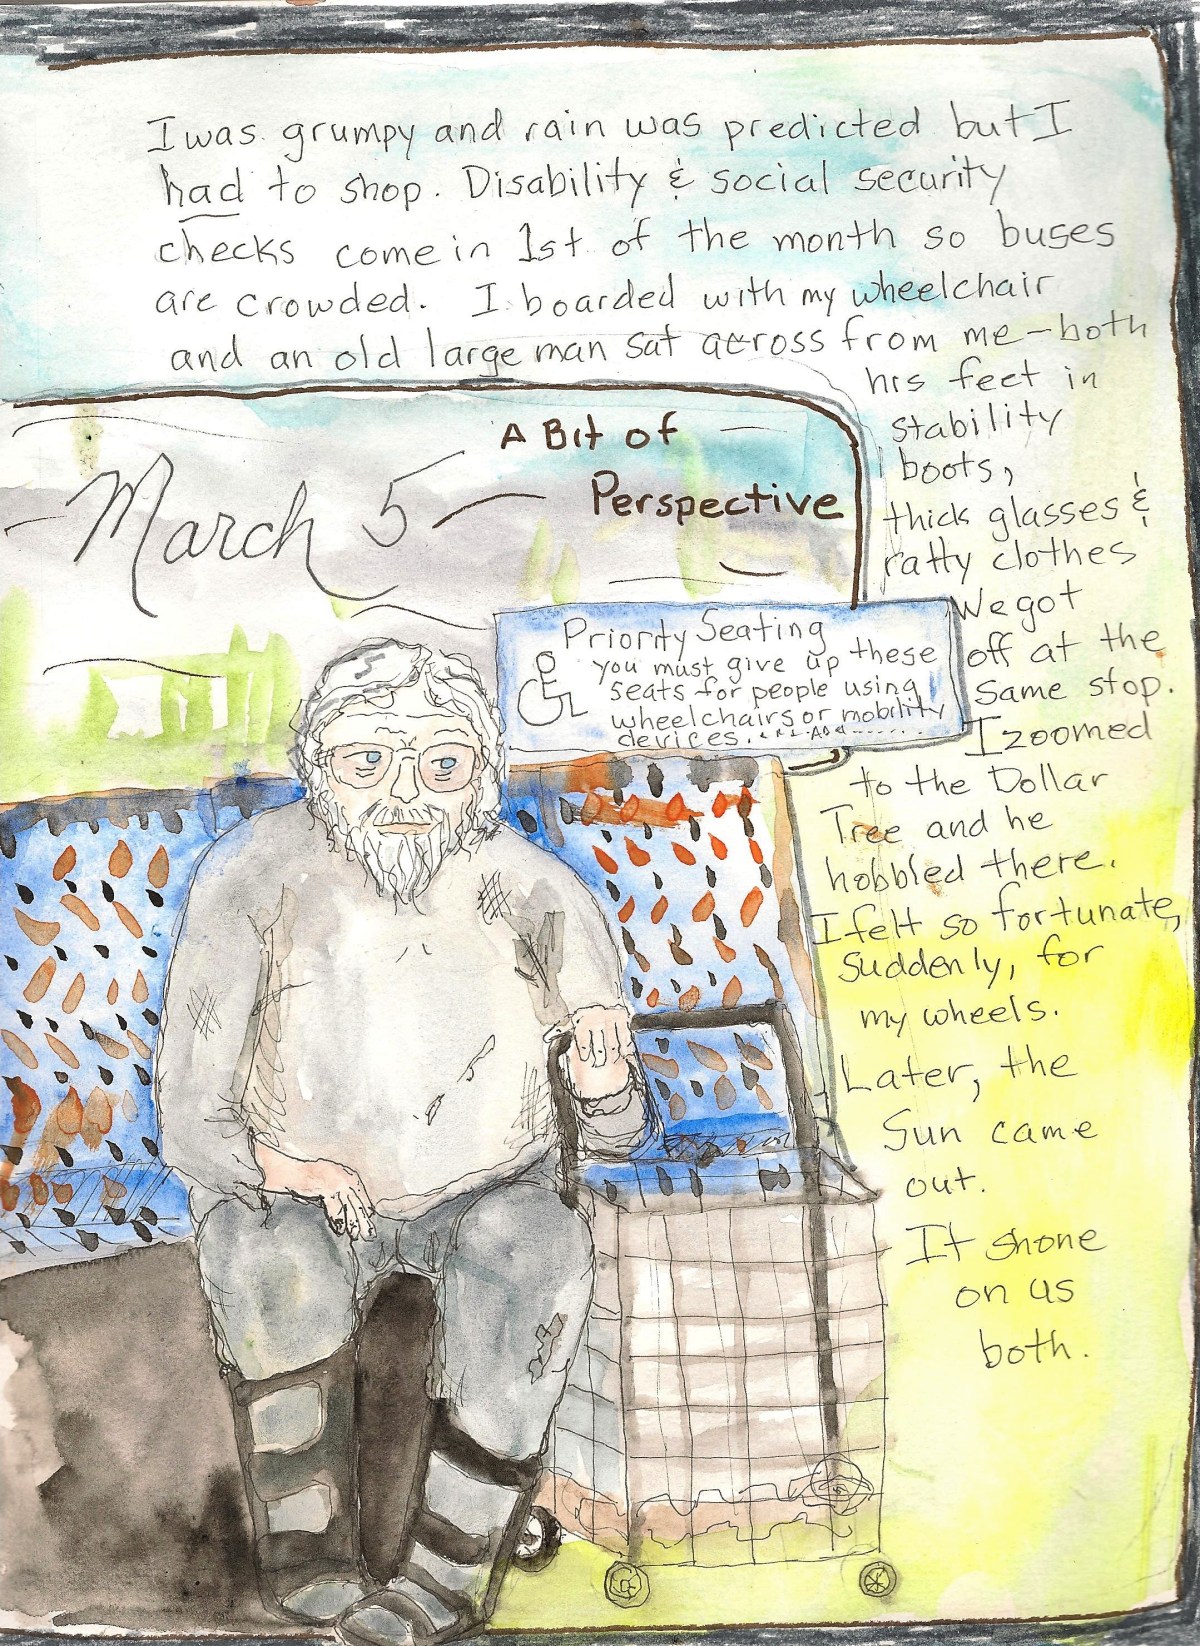 I was grumpy and rain was predicted but I
had to shop. Disability & social security
checks come in 1st of the month so buses
are crowded. I boarded with my wheelchair
and an old large man sat across from me — both
his feet in
stability
boots,
thick glasses &
ratty clothes
We got
off at the
same stop.
I zoomed
to the Dollar
Tree and he
hobbled there.
I felt so fortunate,
suddenly, for
my wheels.
Later, the
Sun came
out.
It shone
on us
both.
A Bit of
Perspective
- March 5 -
Priority Seating
you must give up these
seats for people using
wheelchairs or mobility
devices.